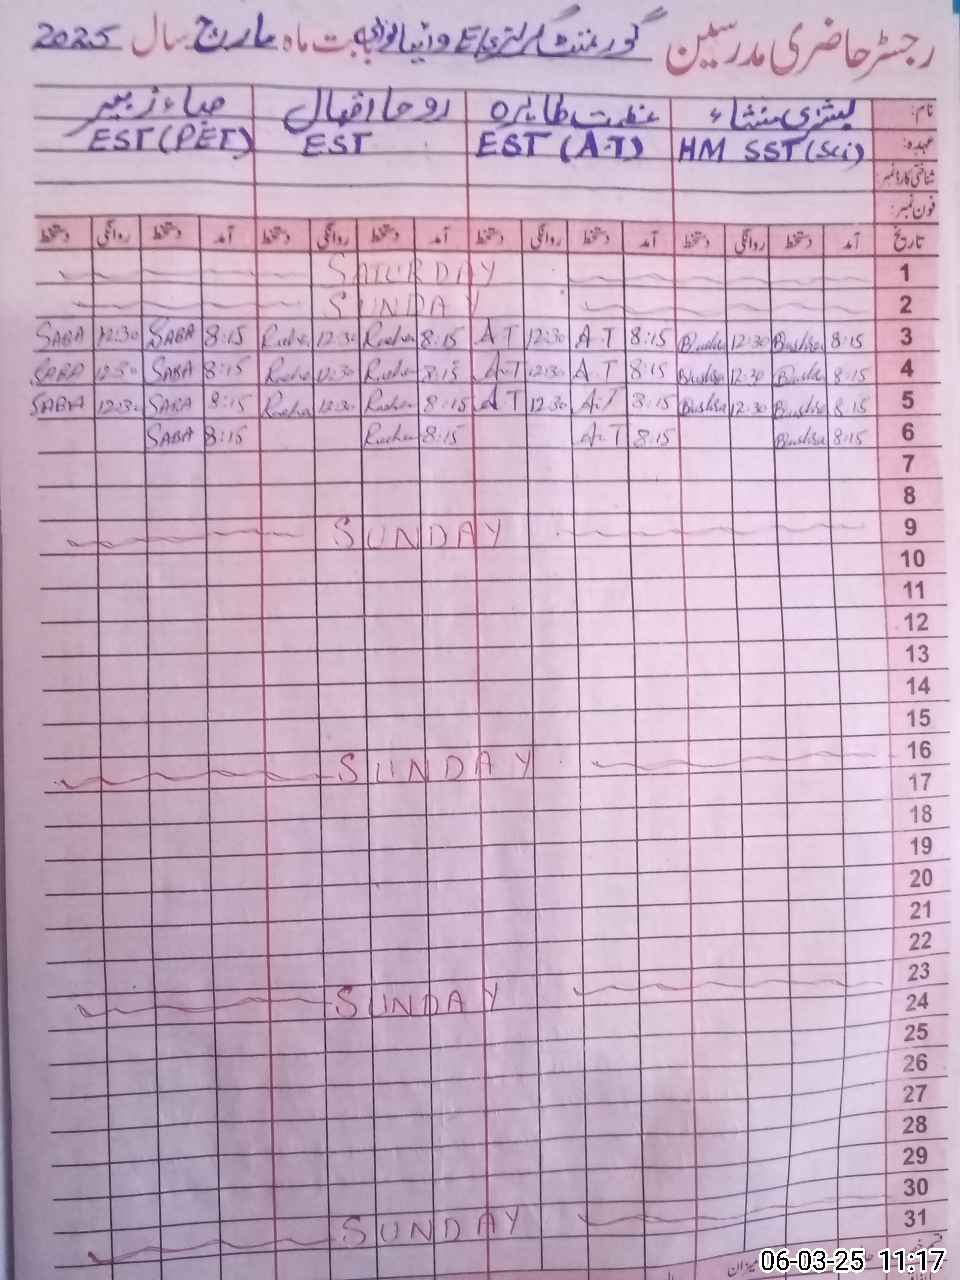 رجسٹر حاضری مدرسین گورنمنٹ گرلز بابت ماہ مارچ سال 2025
نام: بشریٰ منشاء عشرت طاہرہ روحا اقبال صباء زبیر
عہدہ: HM SST (Sci) EST (A.T) EST EST (PET)
شناختی کارڈ نمبر:
فون نمبر:
تاریخ آمد دستخط روانگی دستخط آمد دستخط روانگی دستخط آمد دستخط روانگی دستخط آمد دستخط روانگی دستخط
1 SATURDAY
2 SUNDAY
3 8:15 Bushra 12:30 Bushra 8:15 A.T 12:30 A.T 8:15 Rucha 12:30 Rucha 8:15 SABA 12:30 SABA
4 8:15 Bushra 12:30 Bushra 8:15 A.T 12:30 A.T 8:15 Rucha 12:30 Rucha 8:15 SABA 12:30 SABA
5 8:15 Bushra 12:30 Bushra 8:15 A.T 12:30 A.T 8:15 Rucha 12:30 Rucha 8:15 SABA 12:30 SABA
6 8:15 Bushra 8:15 A.T 8:15 Rucha 8:15 SABA
7
8
9 SUNDAY
10
11
12
13
14
15
16 SUNDAY
17
18
19
20
21
22
23 SUNDAY
24
25
26
27
28
29
30 SUNDAY
31
06-03-25 11:17